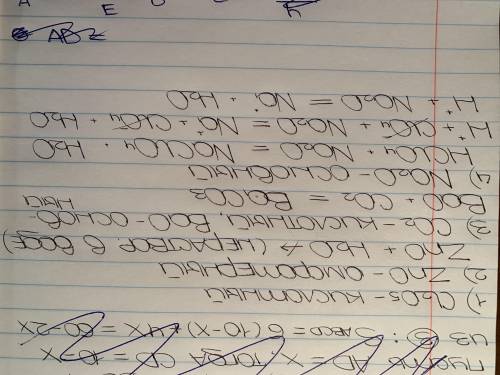 Пусть AD = x тогда CD = 10-x
Из ②: SABCD = 6(10-x)+4x = 60-2x
1) Cl2O5 - кислотный
2) ZnO - амфотерный
ZnO + H2O → (нераствор в воде)
3) CO2 - кислотный, BaO - основ-
ный
BaO + CO2 = BaCO3
4) Na2O - основный
HClO4 + Na2O = NaClO4 + H2O
H+ + ClO4- + Na2O = Na+ + ClO4- + H2O
H+ + Na2O = Na+ + H2O